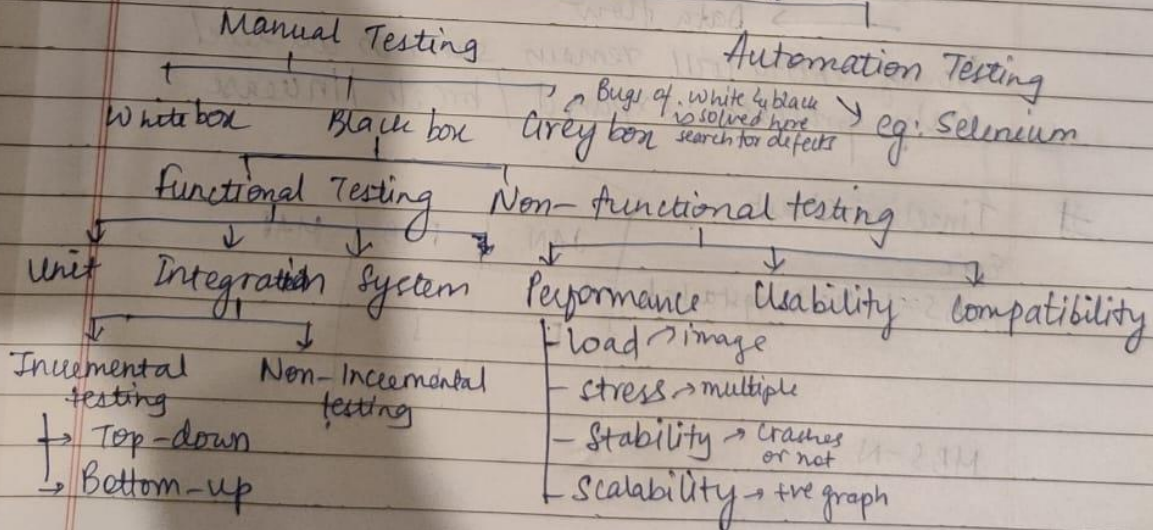 Manual Testing
Automation Testing
White box
Black box
Grey box
Bugs of white & black
is solved here
search for defects
eg: Selenium
Functional Testing
Non-functional testing
Unit
Integration
System
Performance
Usability
Compatibility
load → image
Incremental
testing
Non-Incremental
testing
stress → multiple
Top-down
Stability → crashes
or not
Bottom-up
Scalability → +ve graph